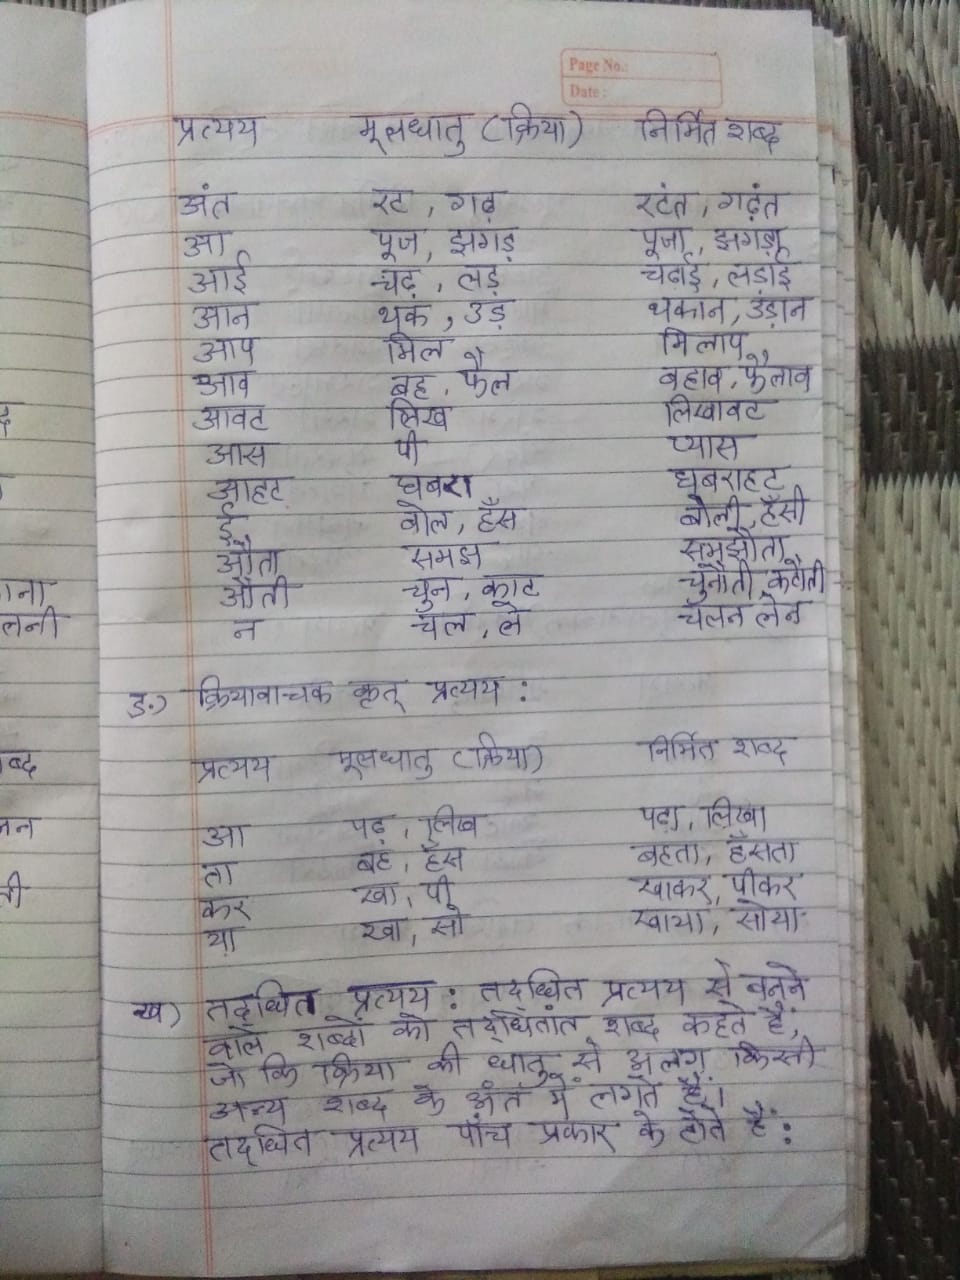 Page No.:
Date :
प्रत्यय मूलधातु (क्रिया) निर्मित शब्द
अंत रट, गढ़ रटंत, गढ़ंत
आ पूज, झगड़ पूजा, झगड़ा
आई चढ़, लड़ चढ़ाई, लड़ाई
आन थक, उड़ थकान, उड़ान
आप मिल मिलाप
आव बह, फैल बहाव, फैलाव
आवट लिख लिखावट
आस पी प्यास
आहट घबरा घबराहट
ई बोल, हँस बोली, हँसी
औता समझ समझौता
औती चुन, काट चुनौती, कटौती
न चल, ले चलन लेन
ङ.) क्रियावाचक कृत् प्रत्यय :
प्रत्यय मूलधातु (क्रिया) निर्मित शब्द
आ पढ़, लिख पढ़ा, लिखा
ता बह, हँस बहता, हँसता
कर खा, पी खाकर, पीकर
या खा, सो खाया, सोया
ख) तद्धित प्रत्यय : तद्धित प्रत्यय से बनने
वाले शब्दों को तद्धितांत शब्द कहते हैं,
जो कि क्रिया की धातु से अलग किसी
अन्य शब्द के अंत में लगते हैं।
तद्धित प्रत्यय पाँच प्रकार के होते हैं :
ाना
लनी
ब्द